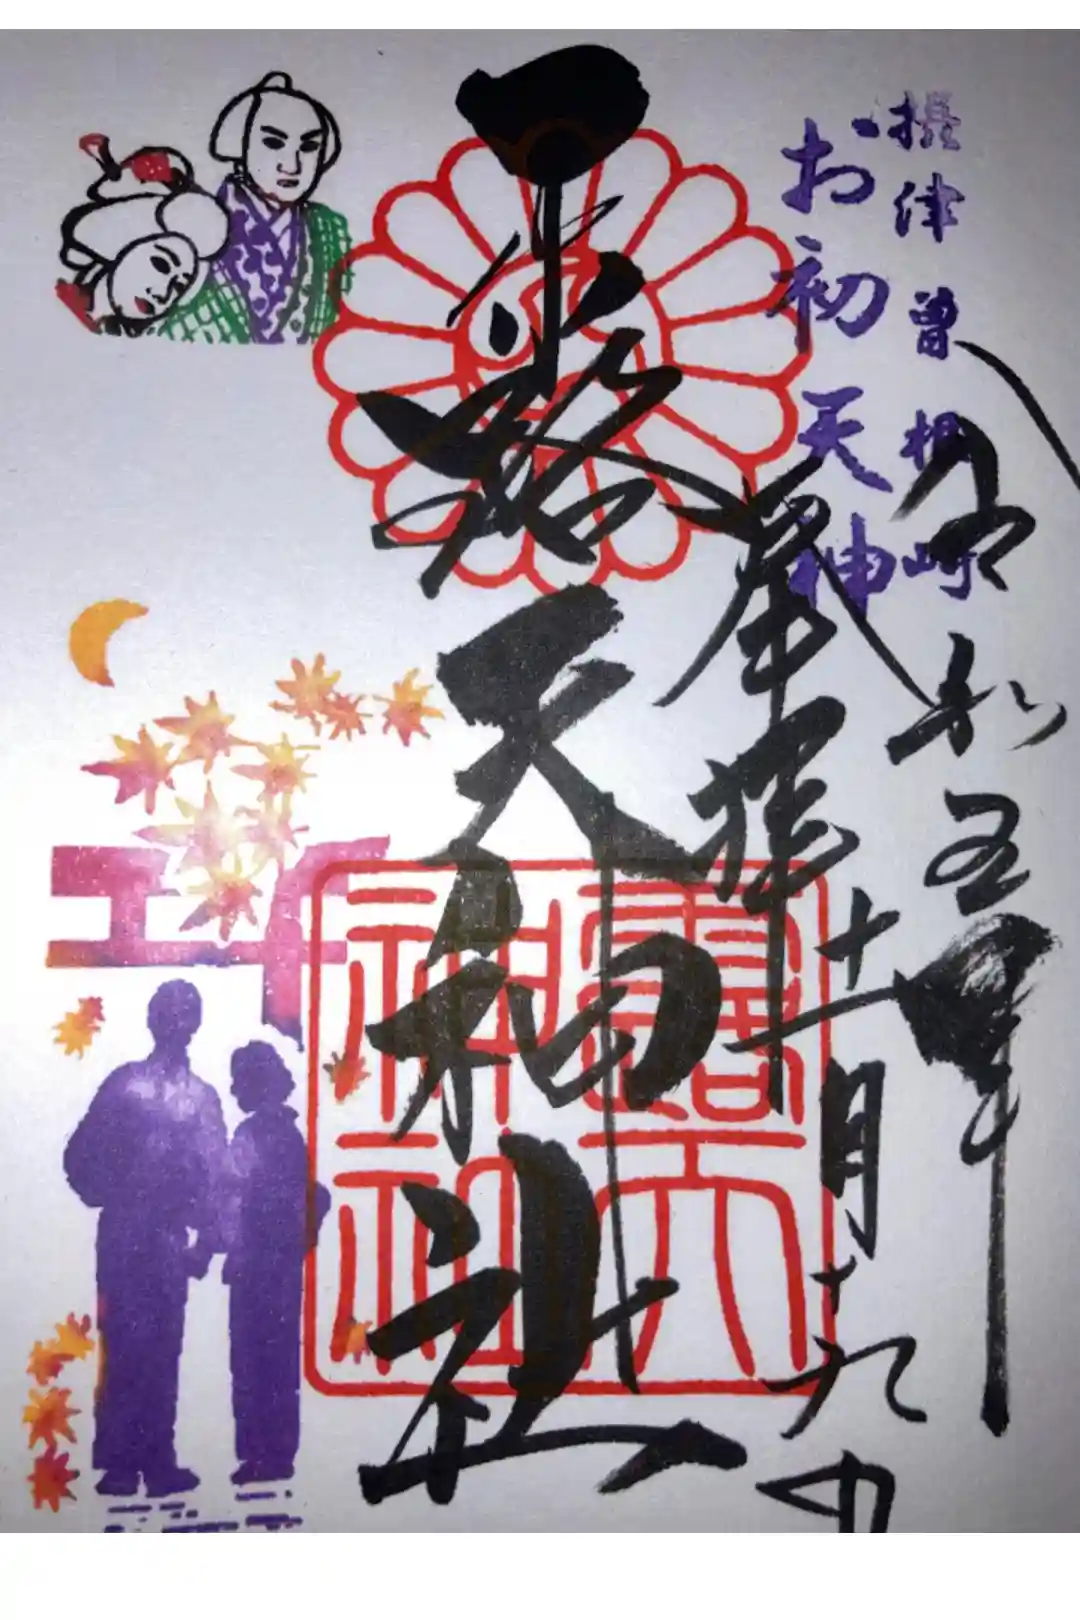 摂津曽根崎
お初天神
令和五年
十一月十九日
奉拝
露天神社
露天神社